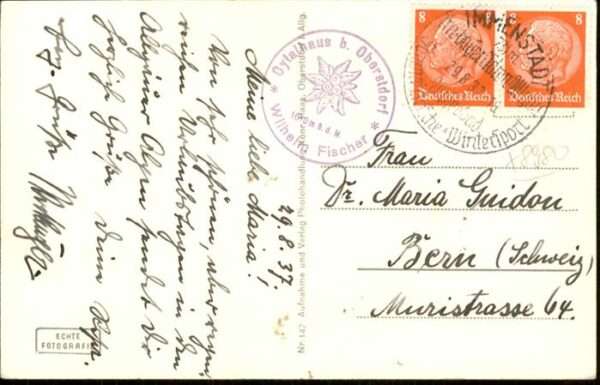 29.8.37.
Meine liebe Maria!
Von sehr schönen, aber regne-
rischen Urlaubstagen in den
Allgäuer Alpen sendet Dir
herzliche Grüße Dein
Grüße
ECHTE
FOTOGRAFIE
Nr. 147 Aufnahme und Verlag Photohandlung Oberstdorf i. Allg.
* Oytalhaus b. Oberstdorf *
Wilhelm Fischer
8 8
Deutsches Reich Deutsches Reich
IMMENSTADT
29.8.
Wintersport
Frau
Dr. Maria Guidon
Bern (Schweiz)
Muristrasse 64.